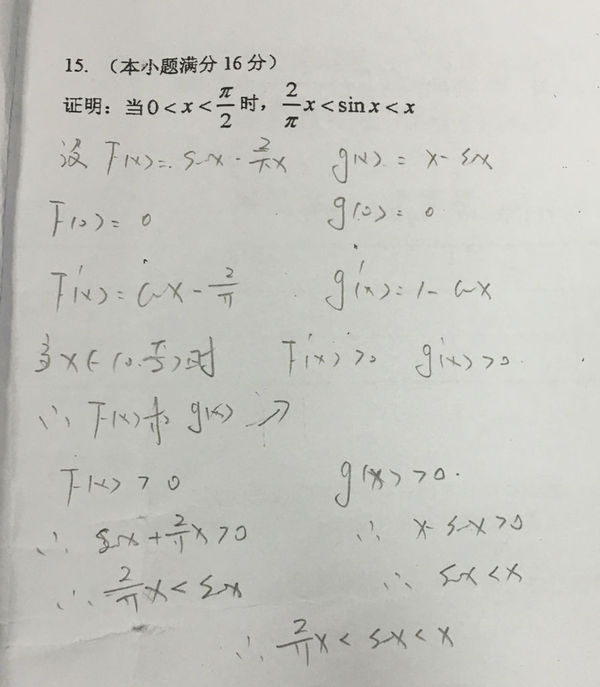 15. (本小题满分 16 分)
证明：当 0 < x < π/2 时，2/π x < sin x < x
设 F(x) = sinx - 2/π x    g(x) = x - sinx
F(0) = 0    g(0) = 0
F'(x) = cosx - 2/π    g'(x) = 1 - cosx
当 x∈(0.π/2) 时    F'(x) > 0    g'(x) > 0.
∴ F(x) 和 g(x) ↗
F(x) > 0    g(x) > 0.
∴ sinx + 2/π x > 0    ∴ x - sinx > 0
∴ 2/π x < sinx    ∴ sinx < x
∴ 2/π x < sinx < x